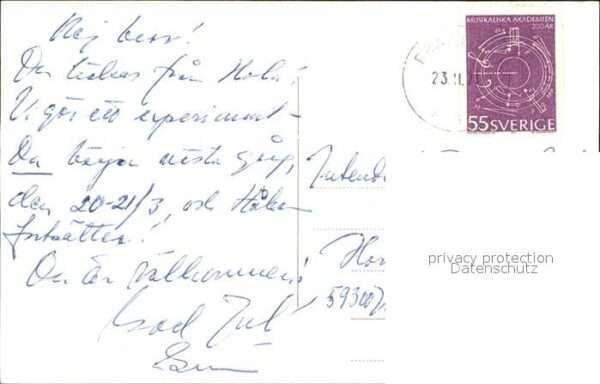 Hej bror!
Du från Hola!
Vi gör ett experiment –
Du börjar nästa gång,
den 20-21/3, och Håkan
fortsätter!
Du är välkommen!
God Jul!
MUSIKALISKA AKADEMIEN
200 ÅR
23.11.7
55 SVERIGE
Intend
Hor
593 00
privacy protection
Datenschutz